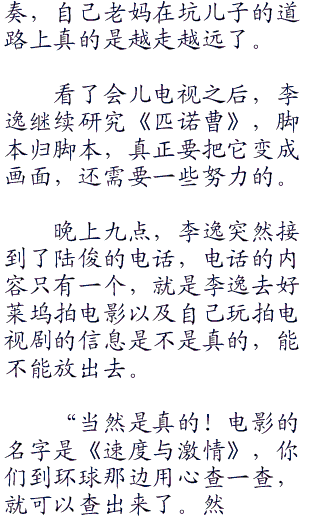 奏，自己老妈在坑儿子的道
路上真的是越走越远了。
看了会儿电视之后，李
逸继续研究《匹诺曹》，脚
本归脚本，真正要把它变成
画面，还需要一些努力的。
晚上九点，李逸突然接
到了陆俊的电话，电话的内
容只有一个，就是李逸去好
莱坞拍电影以及自己玩拍电
视剧的信息是不是真的，能
不能放出去。
“当然是真的！电影的
名字是《速度与激情》，你
们到环球那边用心查一查，
就可以查出来了。然